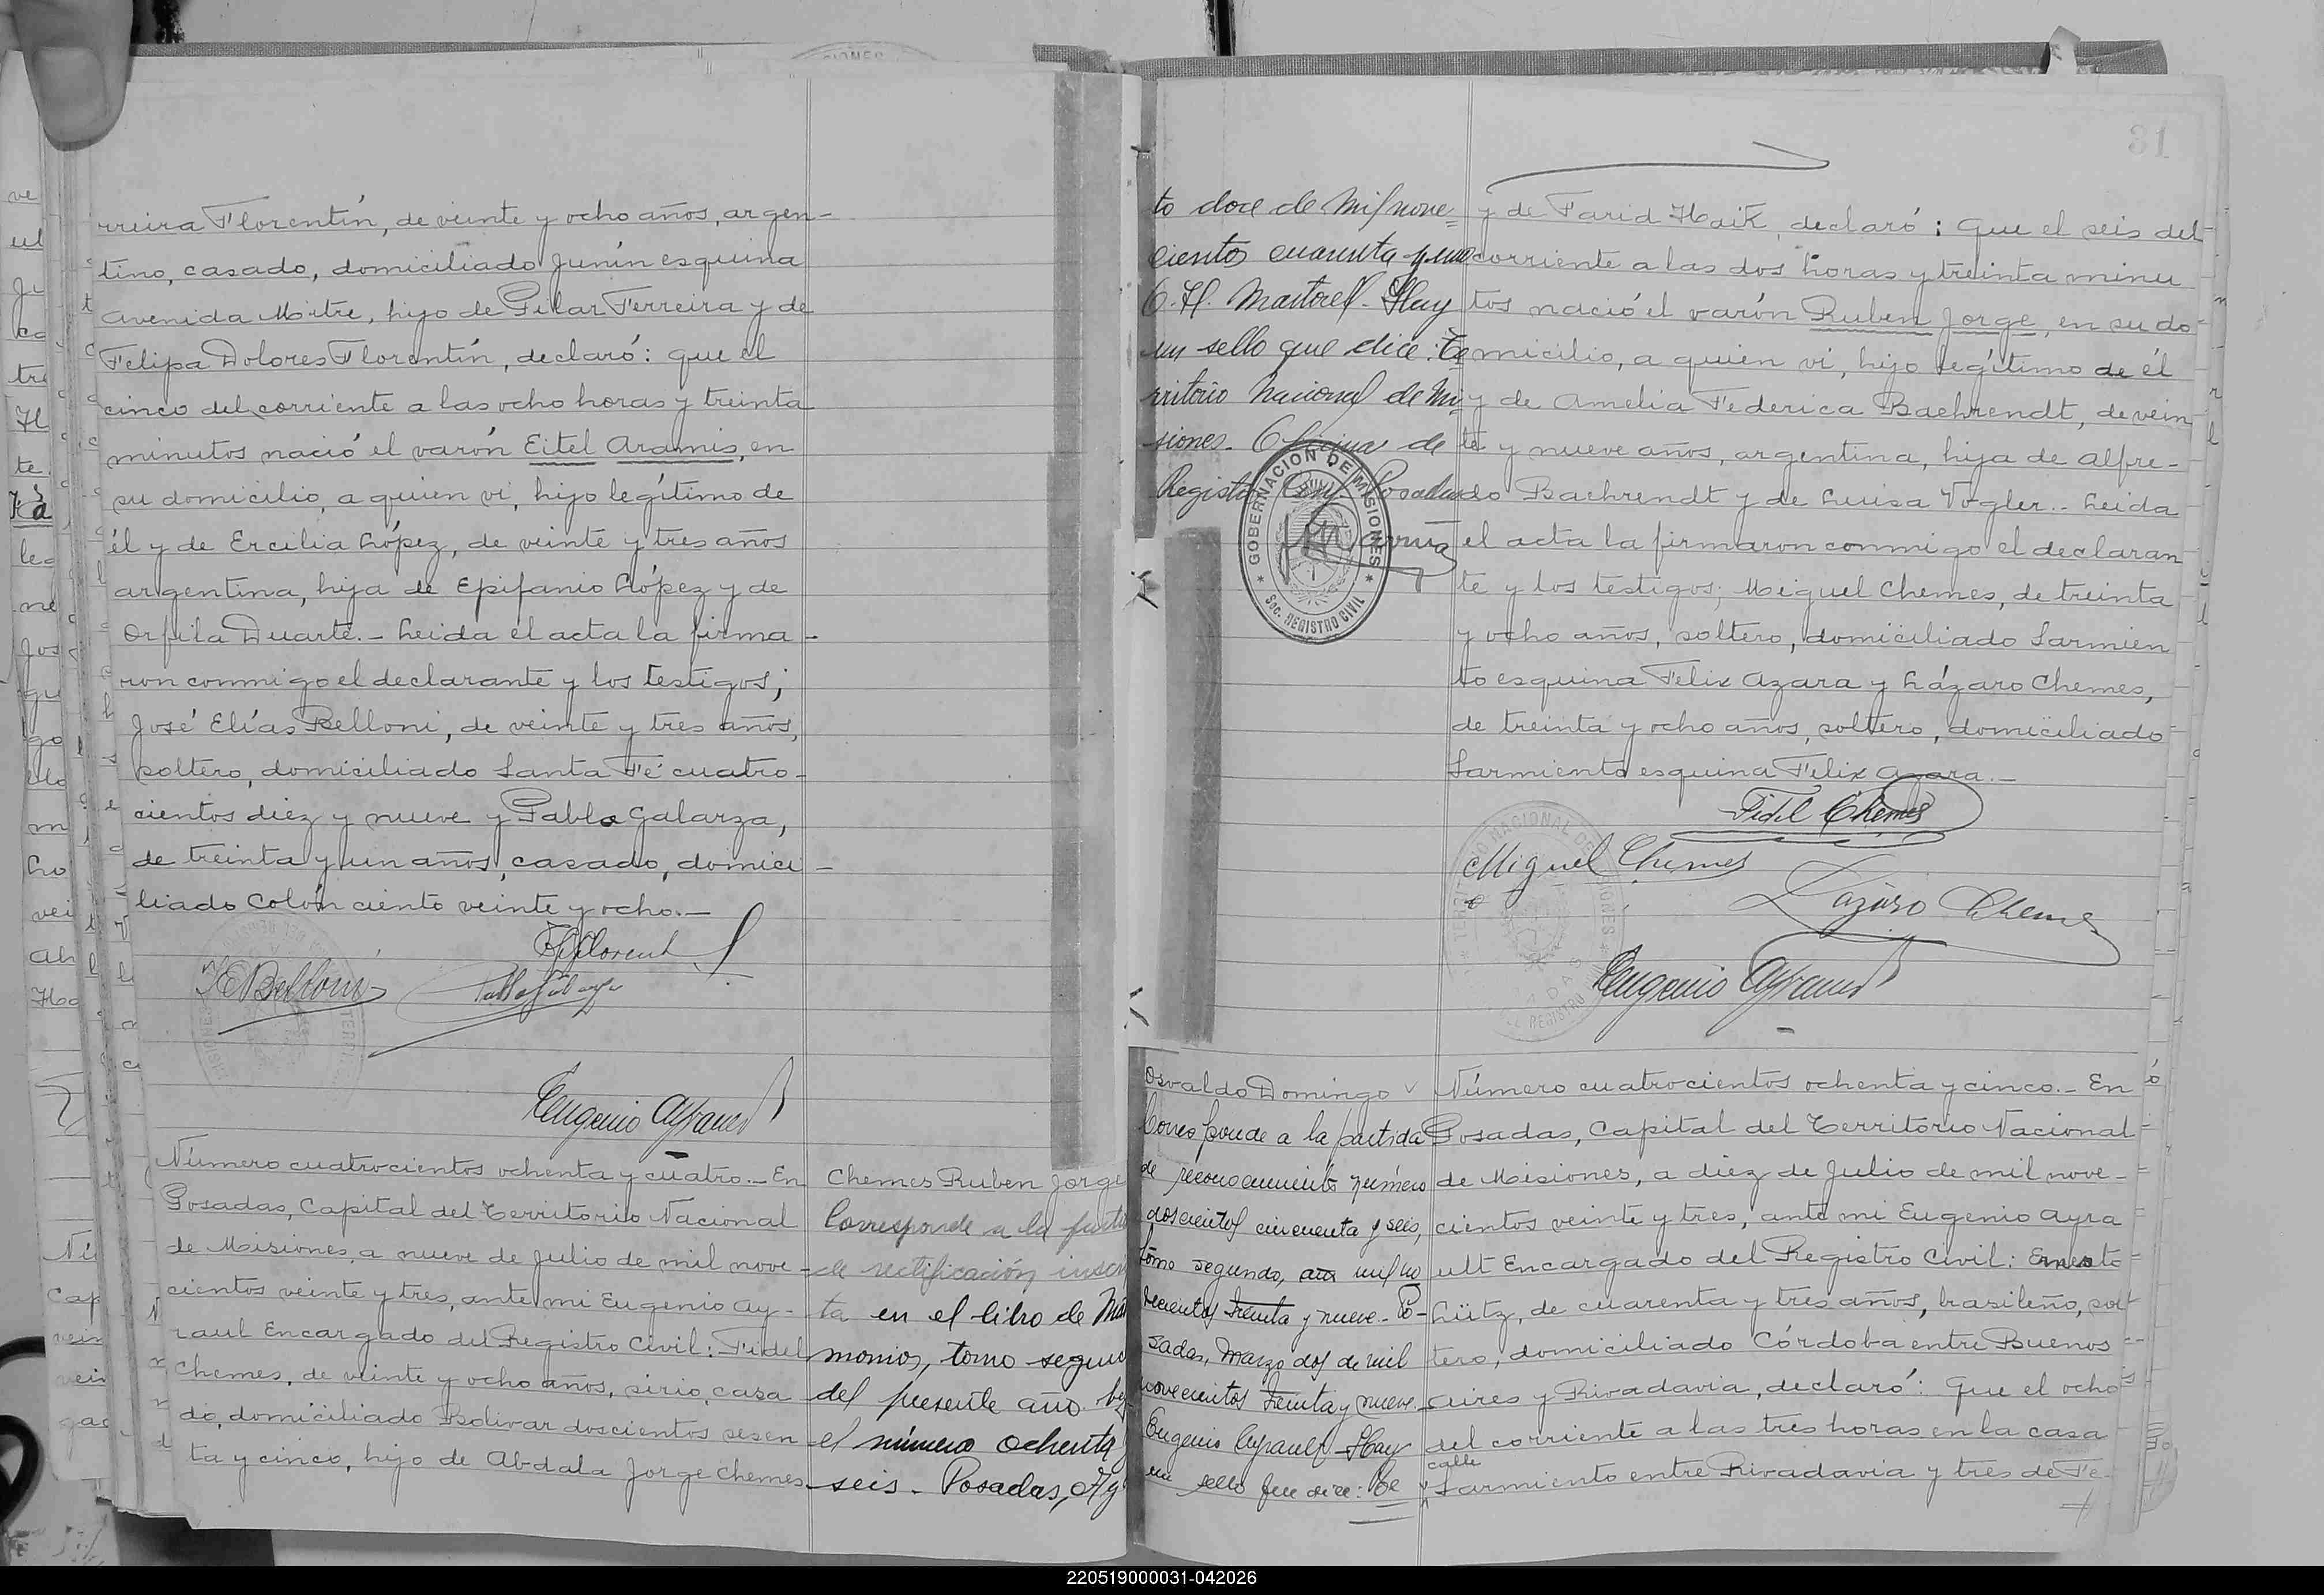 rreira Florentín, de veinte y ocho años, argen-
tino, casado, domiciliado Junín esquina
Avenida Mitre, hijo de Pilar Ferreira y de
Felipa Dolores Florentín, declaró: Que el
cinco del corriente a las ocho horas y treinta
minutos nació el varón Eitel Aramis, en
su domicilio, a quien vi, hijo legítimo de
él y de Ercilia López, de veinte y tres años
argentina, hija de Epifanio López y de
Orfila Duarte.- Leida el acta la firma-
ron conmigo el declarante y los testigos;
José Elías Belloni, de veinte y tres años,
soltero, domiciliado Santa Fé cuatro-
cientos diez y nueve y Pablo Galarza,
de treinta y un años, casado, domici-
liado Colón ciento veinte y ocho.-
J E Belloni
Eugenio Ayrault
Número cuatrocientos ochenta y cuatro.- En
Posadas, Capital del Territorio Nacional
de Misiones, a nueve de Julio de mil nove-
cientos veinte y tres, ante mi Eugenio Ay-
rault Encargado del Registro Civil: Fidel
Chemes, de veinte y ocho años, sirio, casa
do, domiciliado Bolivar doscientos sesen
ta y cinco, hijo de Abdala Jorge Chemes
Chemes Ruben Jorge
Corresponde a la parti
de rectificación inscri
ta en el libro de Ma
monios, tomo segund
del presente año. b
el número ochenta
seis. Posadas, Ag
31
to doce de mil nove=
cientos cuarenta y uno
C. H. Martorel. Hay
un sello que dice: Te
rritorio Nacional de Mi=
siones. Oficina de
Registro Civil. Posadas
GOBERNACION DE MISIONES
SOC. REGISTRO CIVIL
y de Farid Haik, declaró: Que el seis del
corriente a las dos horas y treinta minu
tos nació el varón Ruben Jorge, en su do-
micilio, a quien vi, hijo legítimo de él
y de Amelia Federica Baehrendt, de vein
te y nueve años, argentina, hija de Alfre-
do Baehrendt y de Luisa Vogler.- Leida
el acta la firmaron conmigo el declaran
te y los testigos; Miguel Chemes, de treinta
y ocho años, soltero, domiciliado Sarmien
to esquina Felix Azara y Lázaro Chemes,
de treinta y ocho años, soltero, domiciliado
Sarmiento esquina Felix Azara.-
Fidel Chemes
Miguel Chemes
Lázaro Cheme
Eugenio Ayrault
Osvaldo Domingo
Corresponde a la partida
de reconocimiento número
doscientos cincuenta y seis,
tomo segundo, mil no
vecientos treinta y nueve.- Po-
sadas, Marzo dos de mil
novecientos treinta y nueve.
Eugenio Ayrault - Hay
un sello que dice: Te
Número cuatrocientos ochenta y cinco.- En
Posadas, Capital del Territorio Nacional
de Misiones, a diez de Julio de mil nove-
cientos veinte y tres, ante mi Eugenio Ayra
ult Encargado del Registro Civil: Ernesto
Lütz, de cuarenta y tres años, brasileño, sol-
tero, domiciliado Córdoba entre Buenos
Aires y Rivadavia, declaró: Que el ocho
del corriente a las tres horas en la casa
calle
Sarmiento entre Rivadavia y tres de Fe-
220519000031-042026